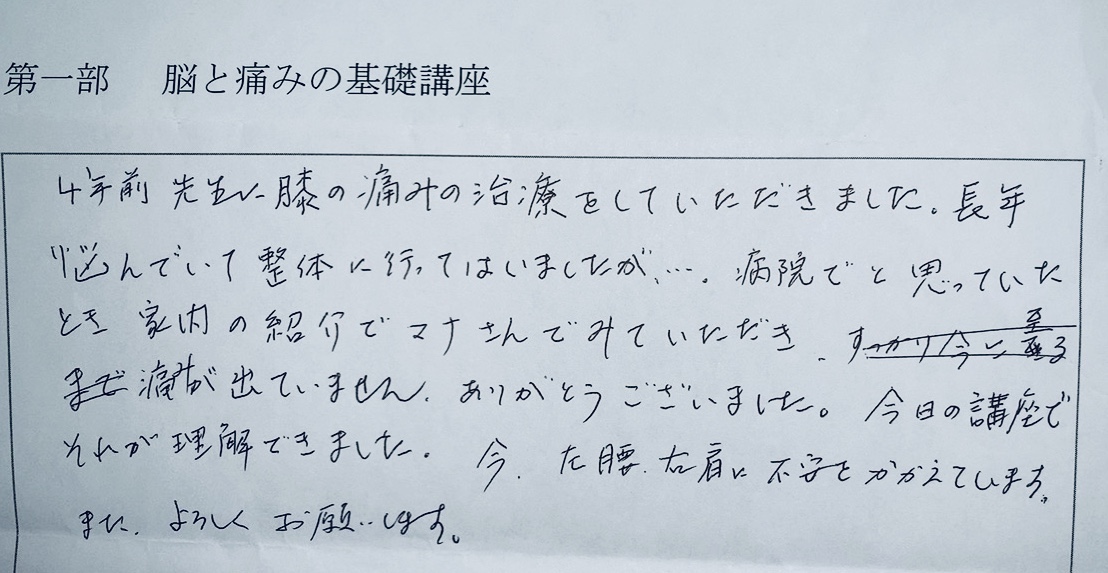 第一部　脳と痛みの基礎講座
4年前 先生に膝の痛みの治療をしていただきました。長年
悩んでいて整体に行ってはいましたが、…。病院でと思っていた
とき 家内の紹介でマナさんでみていただき、すっかり今に至る
まで痛みが出ていません。ありがとうございました。今日の講座で
それが理解できました。今、左腰、右肩に不安をかかえています。
また、よろしくお願いします。